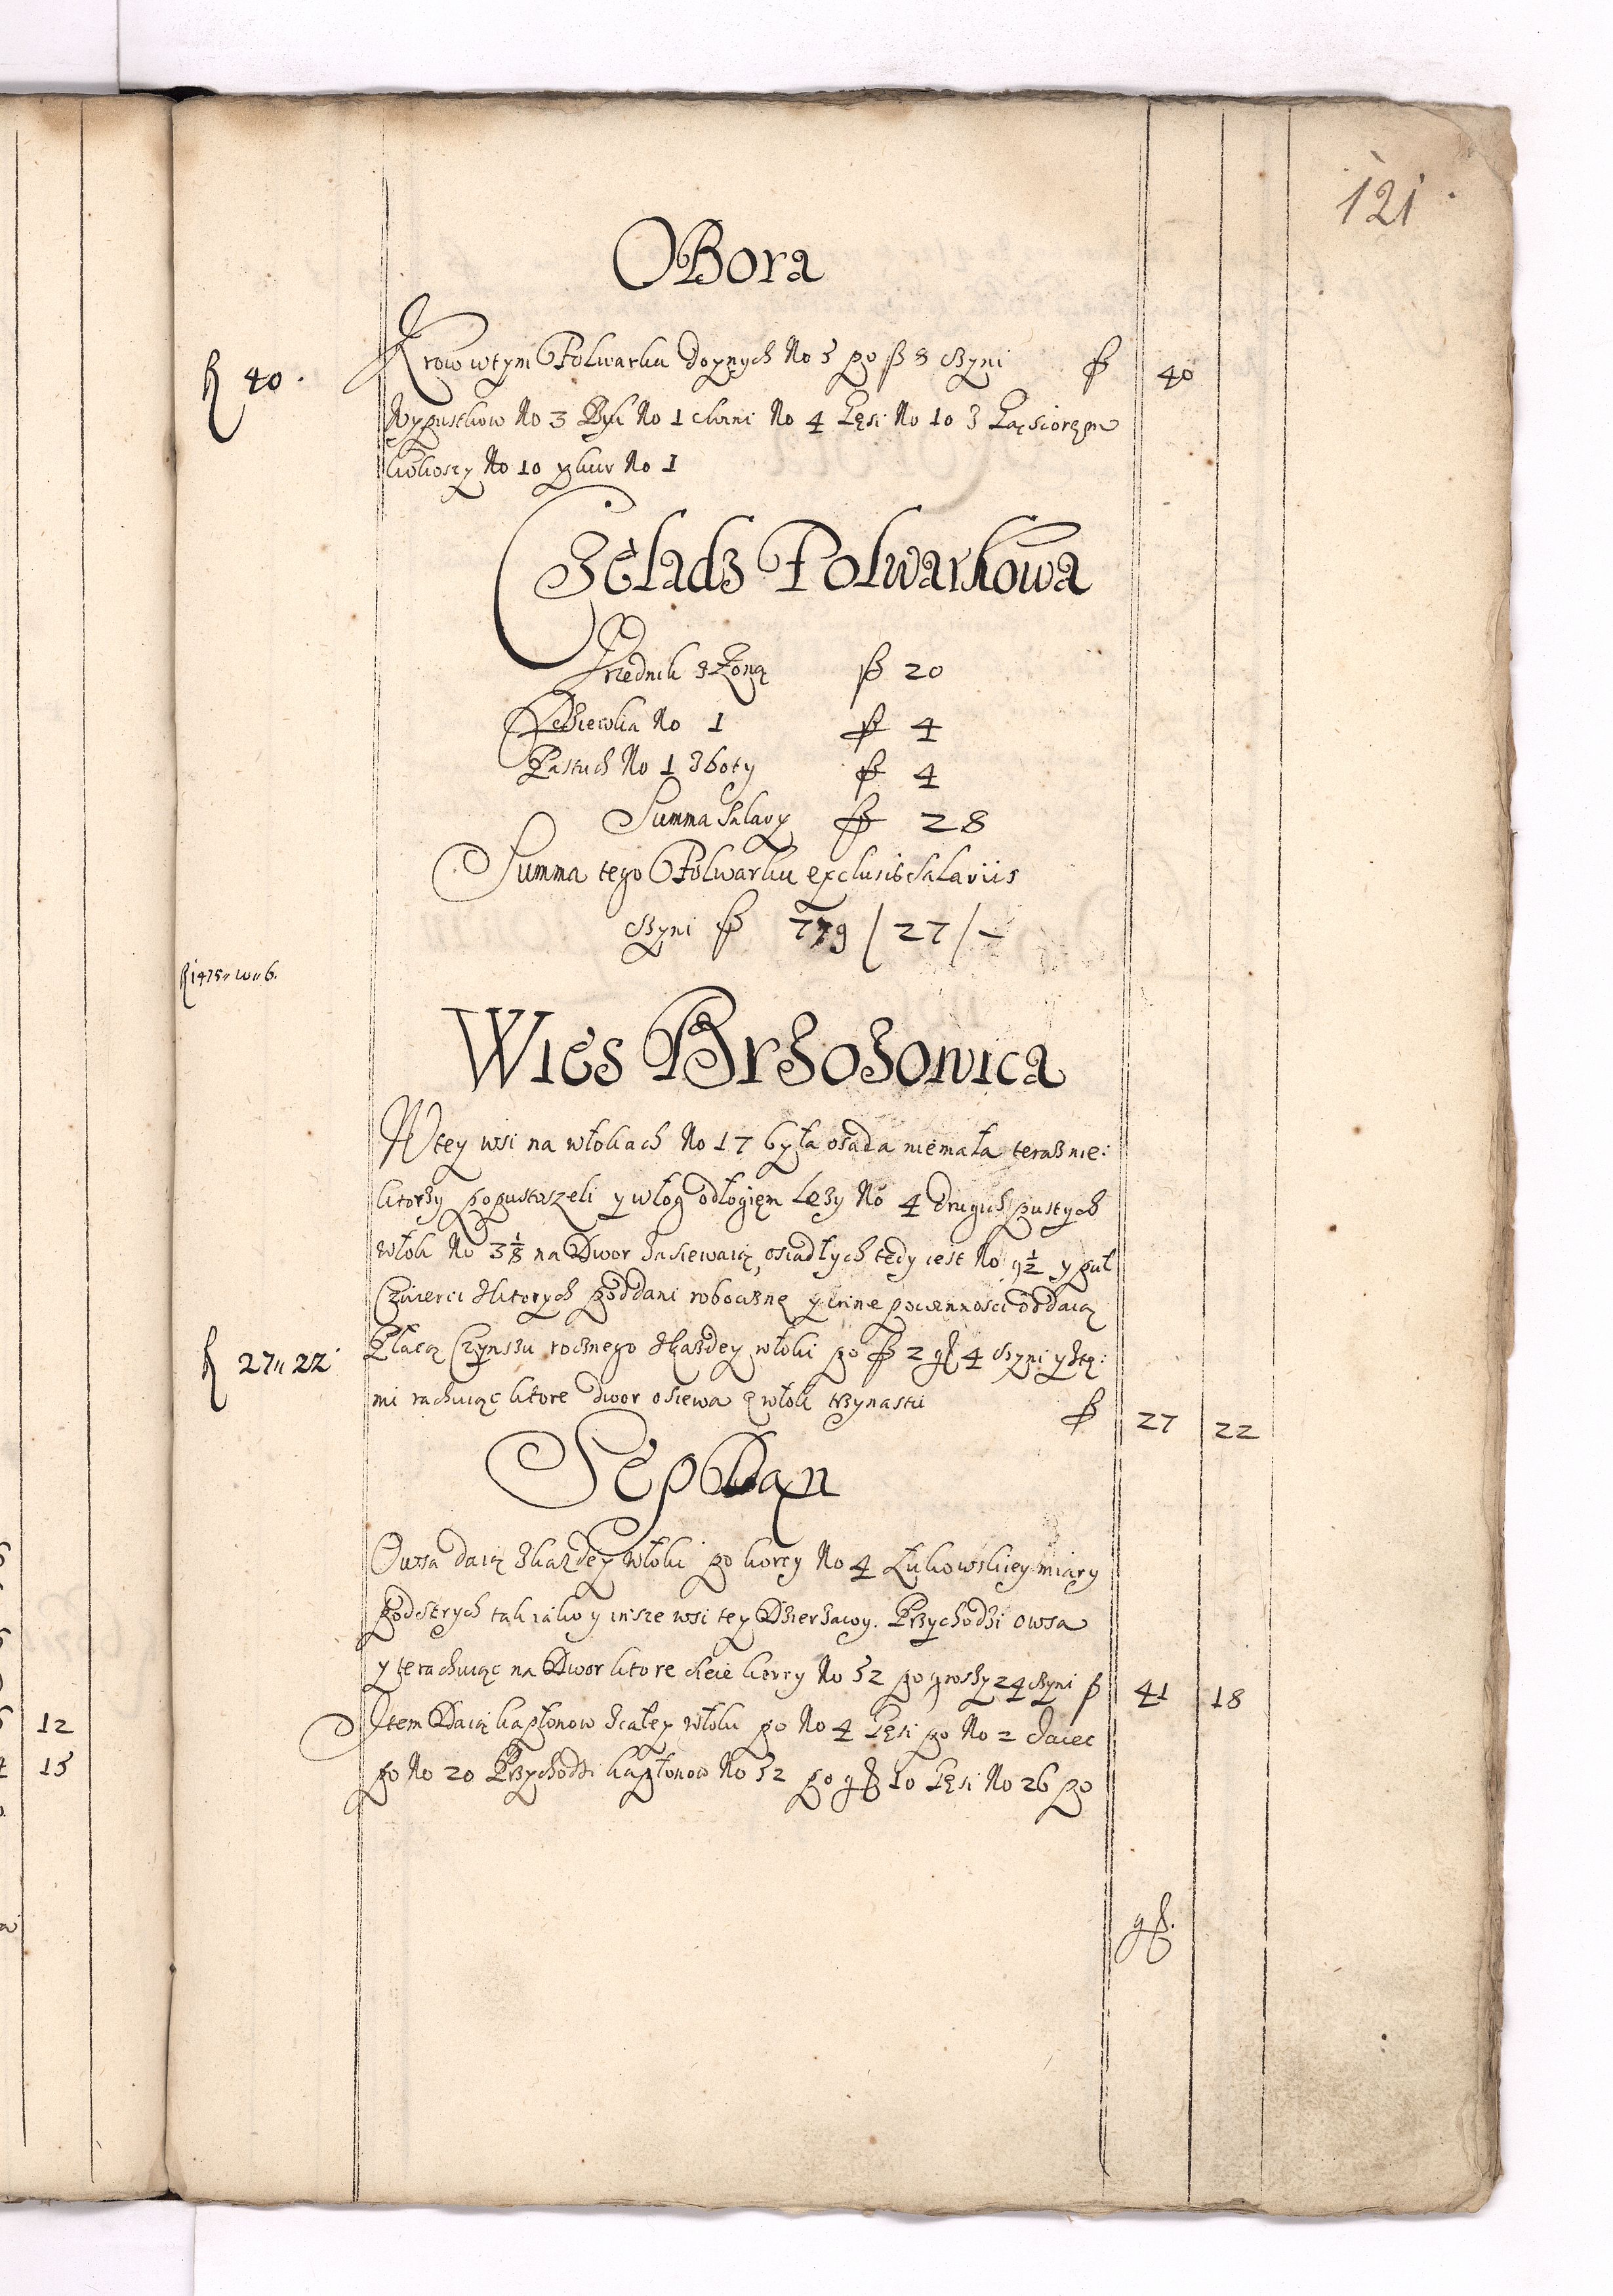 121
OBora
Krow w tym Folwarku doynych No 5 po fl 8 czyni fl 40
fl 40.
Wypustkow No 3 Byk No 1 No 4 Gęsi No 10 z Gąsioręm
kokoszy No 10 y kur No 1
Czeladz Folwarkowa
Vrzednik z Zoną fl 20
Dziewka No 1 fl 4
Pastuch No 1 z boty fl 4
Summa Salary fl 28
Summa tego Folwarku exclusis Salariis
czyni fl 779 / 27 / –
fl 1475 " 6.
Wies Brzozowica
W tey wsi na włokach No 17 była osada niemała teraz nie:
ktorzy popustoszeli y włog odłogięm Lezy No 4 drugich pustych
włok No 3 1/8 na Dwor zasiewaią, osiadłych tedy iest No 9 1/2 y puł
Czwierci z ktorych poddani robociznę y inne powinnosci oddaią
Płacą Czynszu rocznego z kazdey włoki po fl 2 gr 4 czyni y z tę:
fl 27 " 22
mi rachuiąc ktore dwor osiewa z włok trzynastu fl 27 22
Sep Dan
Owsa daią z kazdey włoki po korcy No 4 Łukowskiey miary
pod strych tak iako y insze wsi tey Dzierzawy. Przychodzi owsa
y te rachuiąc na Dwor ktore sieie korcy No 52 po groszy 24 czyni fl 41 18
Item Daią kapłonow z całey włoki po No 4 Gęsi po No 2 Jaiec
po No 20 Przychodzi kapłonow No 52 po gr 10 Gęsi No 26 po
gr.
12
15